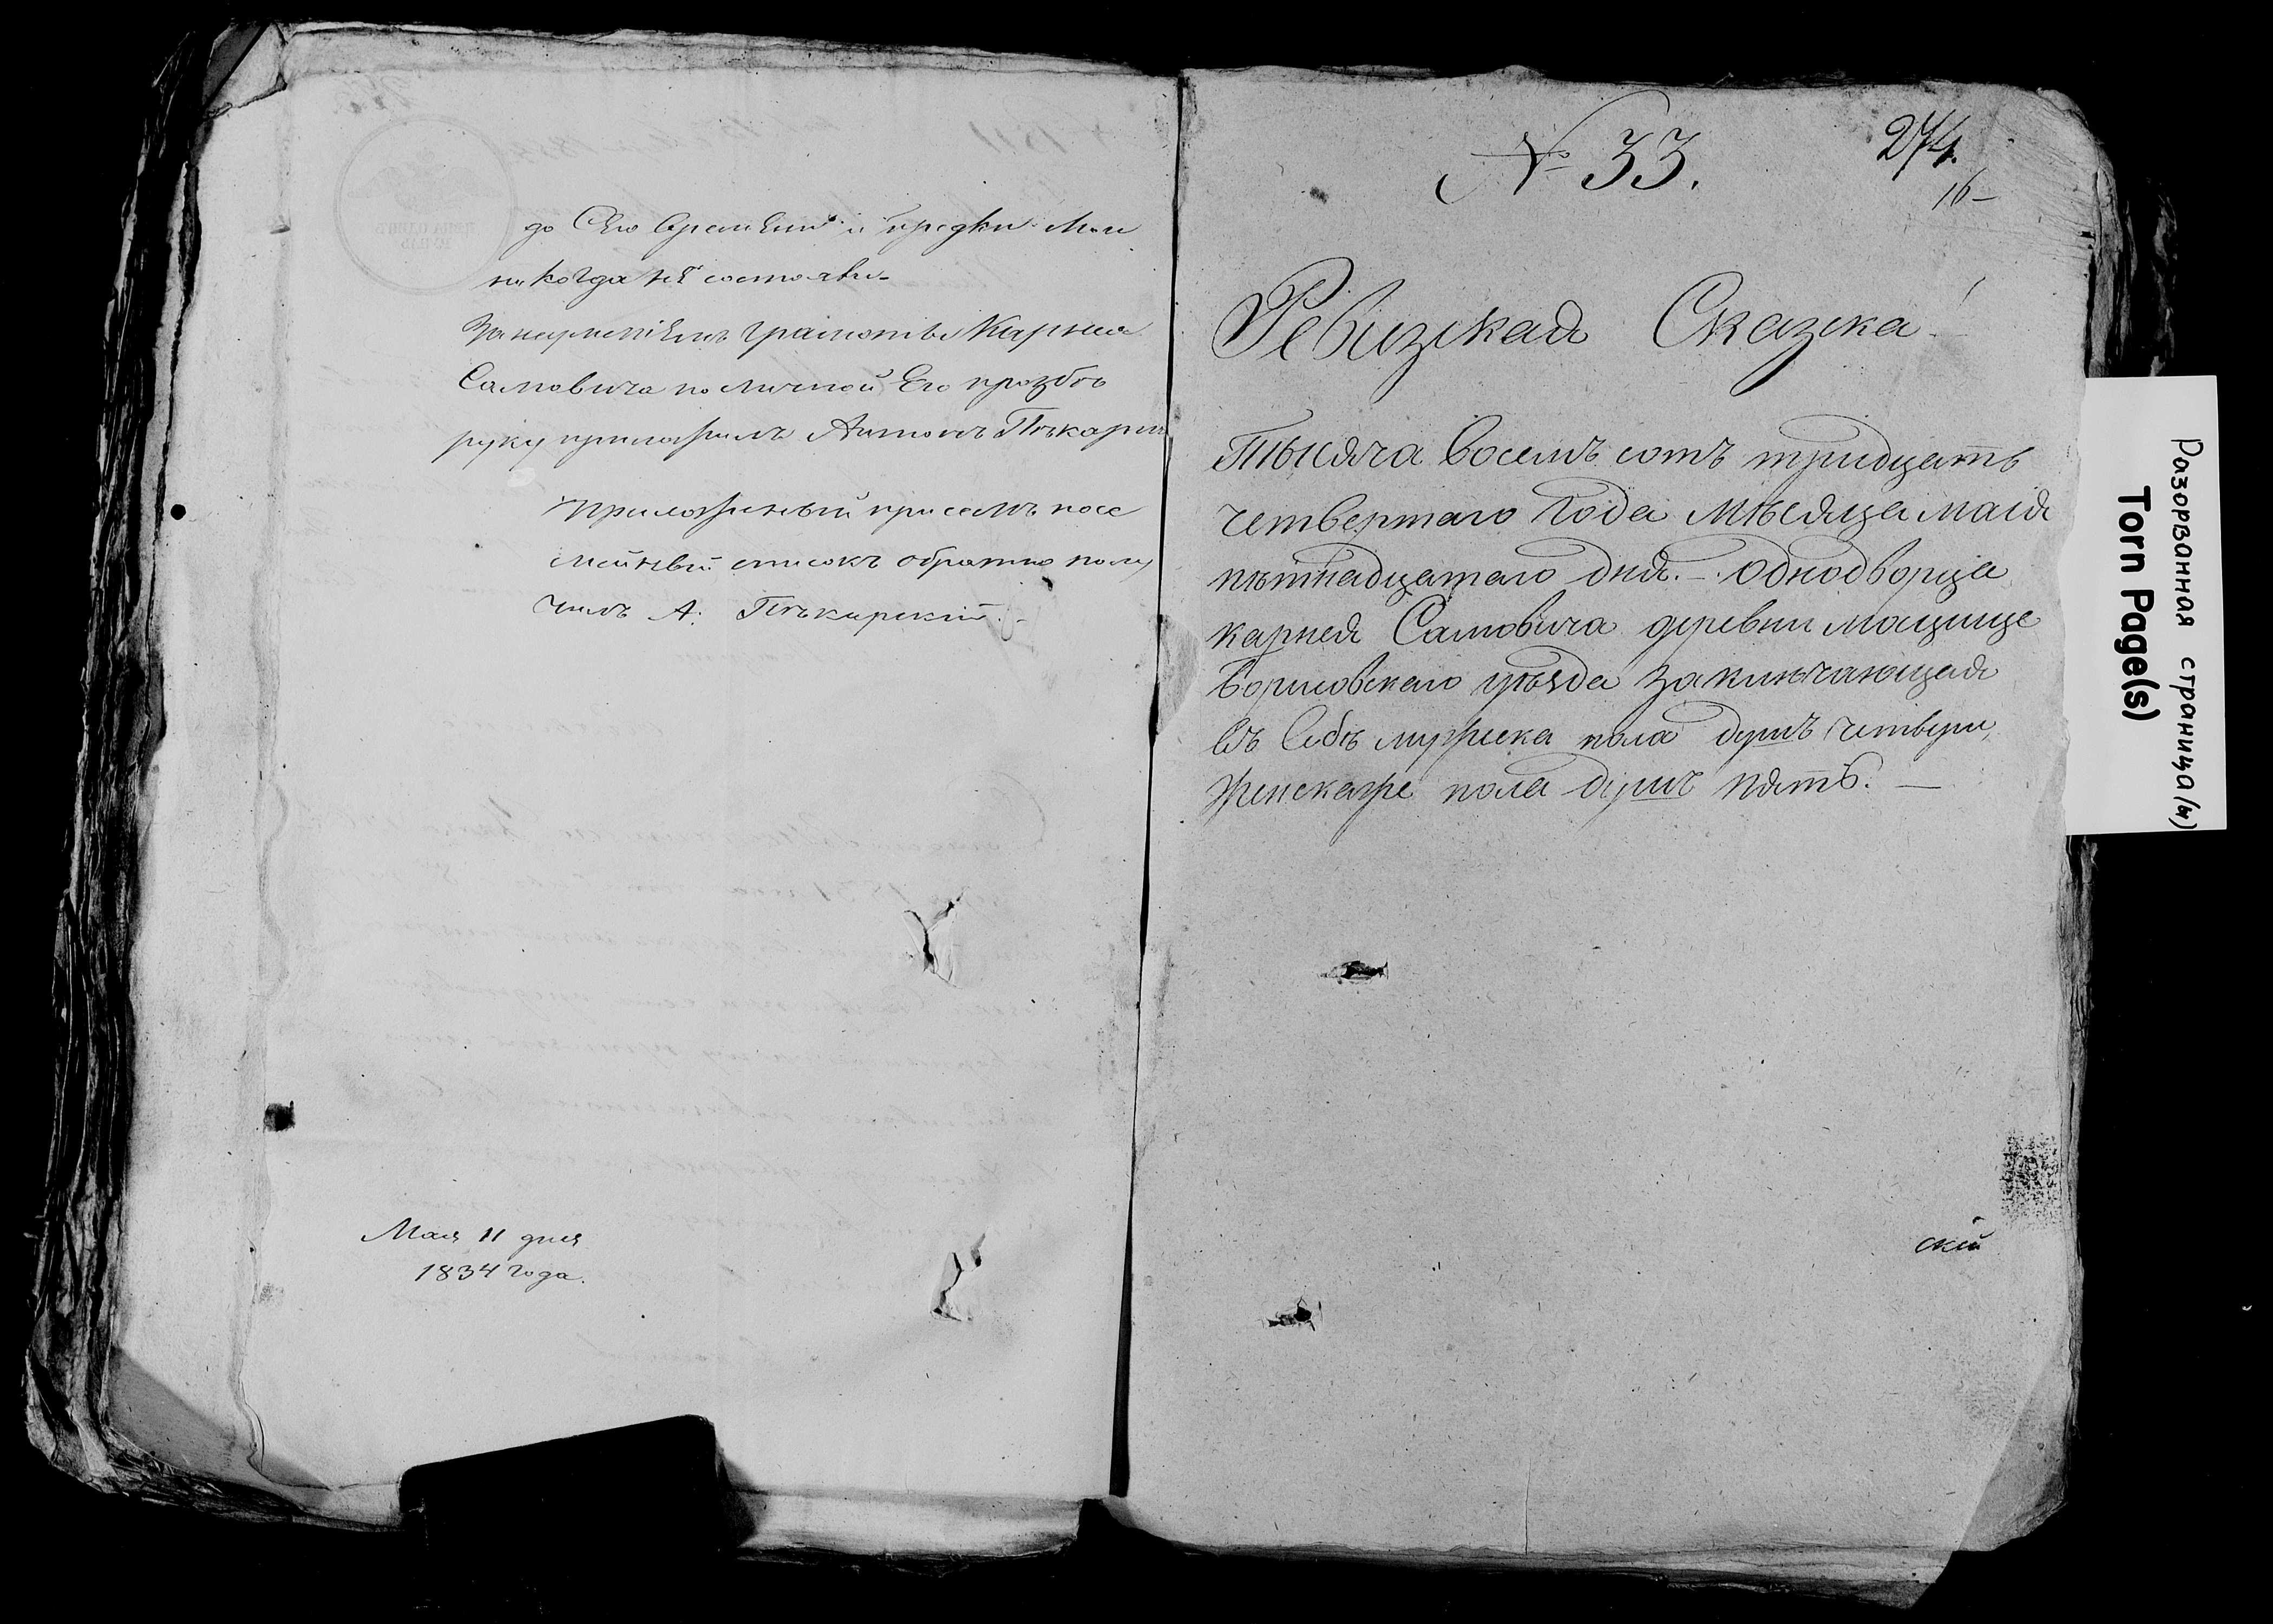 до Сего времени и предки Мои
никогда не состояли
За неумениемъ грамоты Карнея
Самовича по личной Его прозбе
руку приложилъ Антонъ Пекарский
приложенный при семъ посе
мейный списокъ обратно полу
чилъ А. Пекарский
Мая 11 дня
1834 года.
№ 33.
274.
16
Ревизкая Сказка
Тысяча восемъ сотъ тридцать
четвертаго Года Мѣсяца маия
пятнадцатаго дня. Однодворца
карнея Самовича деревни мощище
Борисовскаго уѣзда Заключающая
въ Себѣ мужеска пола душъ четыри,
женскаже пола душъ пять.
ский
Разорванная страница(ы)
Torn Page(s)